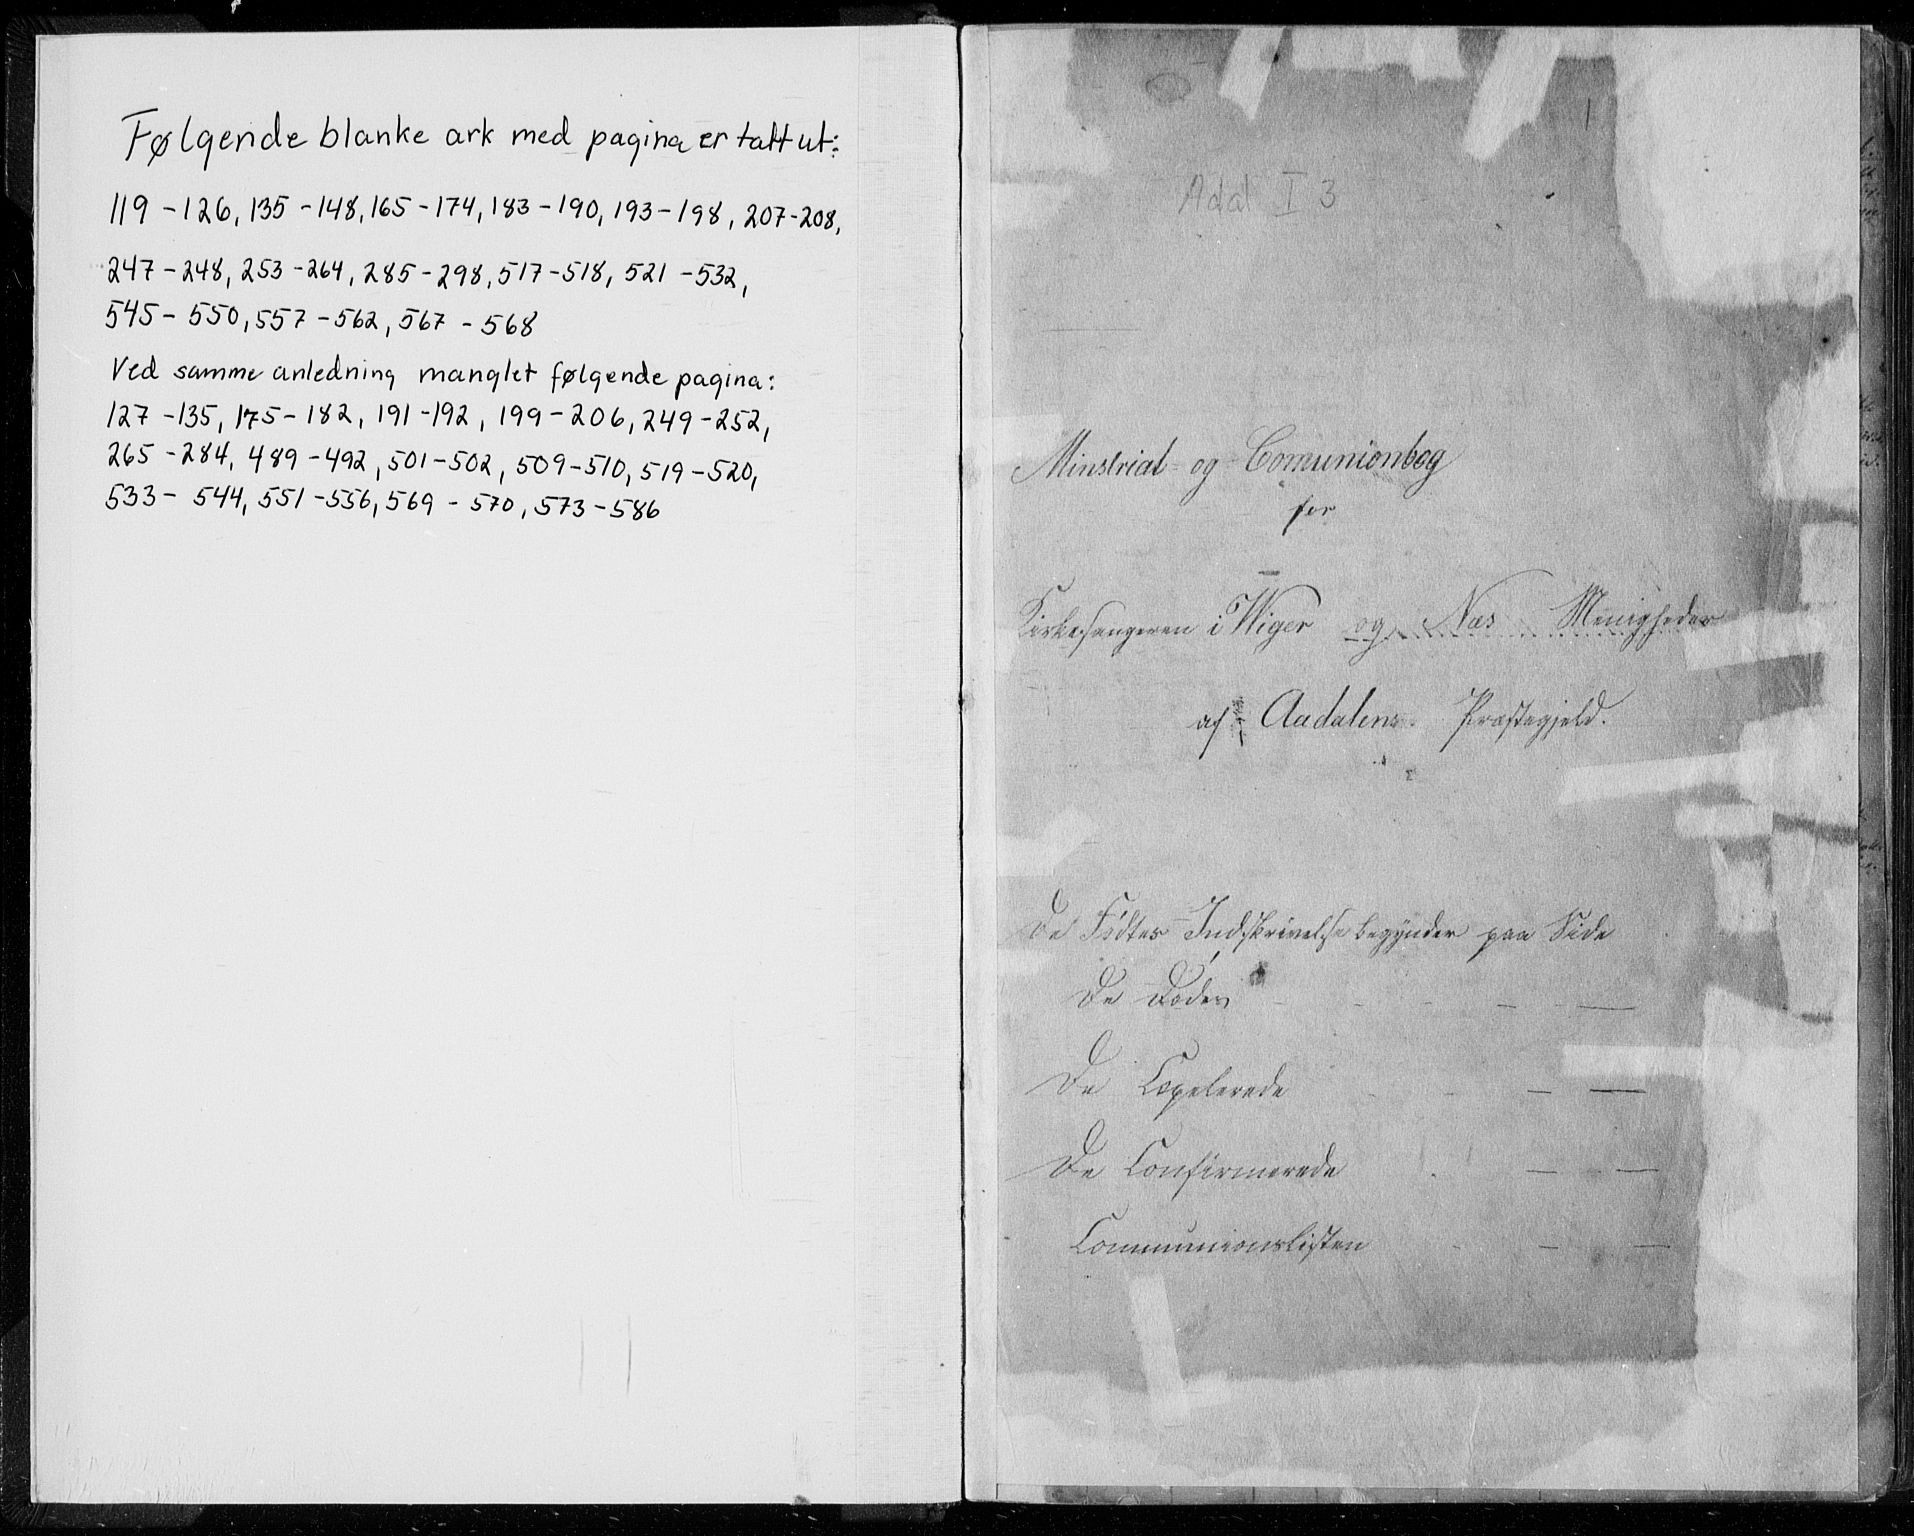 Følgende blanke ark med pagina er tatt ut:
119 - 126, 135 - 148, 165 - 174, 183 - 190, 193 - 198, 207 - 208,
247 - 248, 253 - 264, 285 - 298, 517 - 518, 521 - 532,
545 - 550, 557 - 562, 567 - 568
Ved samme anledning manglet følgende pagina:
127 - 135, 175 - 182, 191 - 192, 199 - 206, 249 - 252,
265 - 284, 489 - 492, 501 - 502, 509 - 510, 519 - 520,
533 - 544, 551 - 556, 569 - 570, 573 - 586
1
Adal I 3
Minstrial- og Comunionbog
for
Kirkesangeren i Wiger og Næs Menigheder
af Aadalens Præstegjeld.
De Fødtes Indskrivelse begynder paa Side
De Døde
De Copelerede
De Confirmerede
Communionslisten